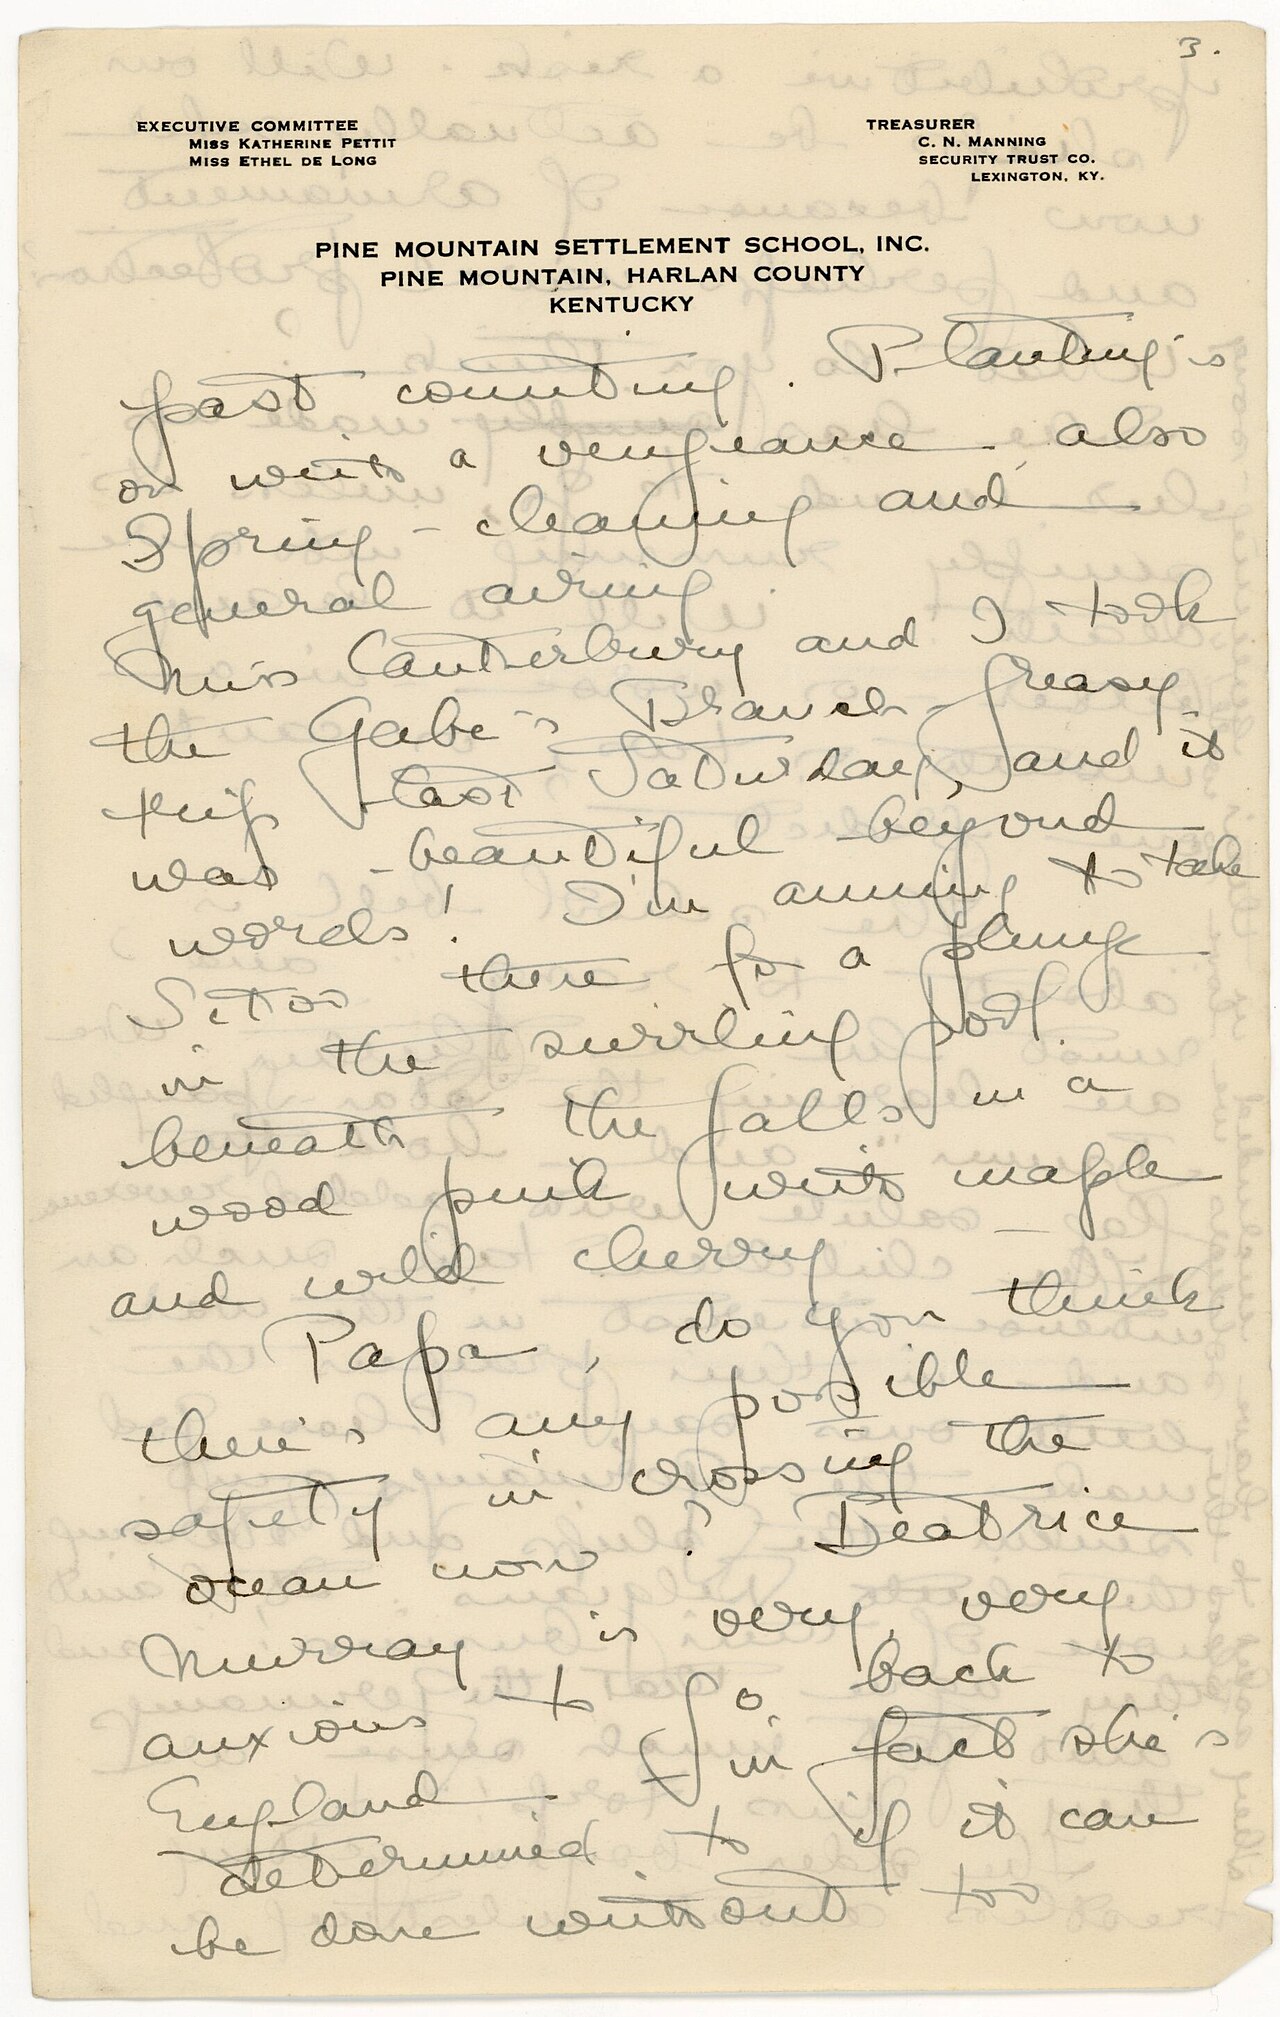 3.
EXECUTIVE COMMITTEE
MISS KATHERINE PETTIT
MISS ETHEL DE LONG
TREASURER
C. N. MANNING
SECURITY TRUST CO.
LEXINGTON, KY.
PINE MOUNTAIN SETTLEMENT SCHOOL, INC.
PINE MOUNTAIN, HARLAN COUNTY
KENTUCKY
past counting. Planting's
on with a vengeance also
Spring-cleaning and
general airing.
Miss Canterbury and I took
the Gabe's Branch-Greasy
trip last Saturday, and it
was beautiful beyond
words! I'm aiming to take
there for a plunge
in the swirling pool
beneath the falls in a
wood pink with maple
and wild cherry—
Papa, do you think
there's any possible
safety in crossing the
ocean now? Beatrice
Murray is very, very
anxious to go back to
England — in fact she's
determined to if it can
be done without too